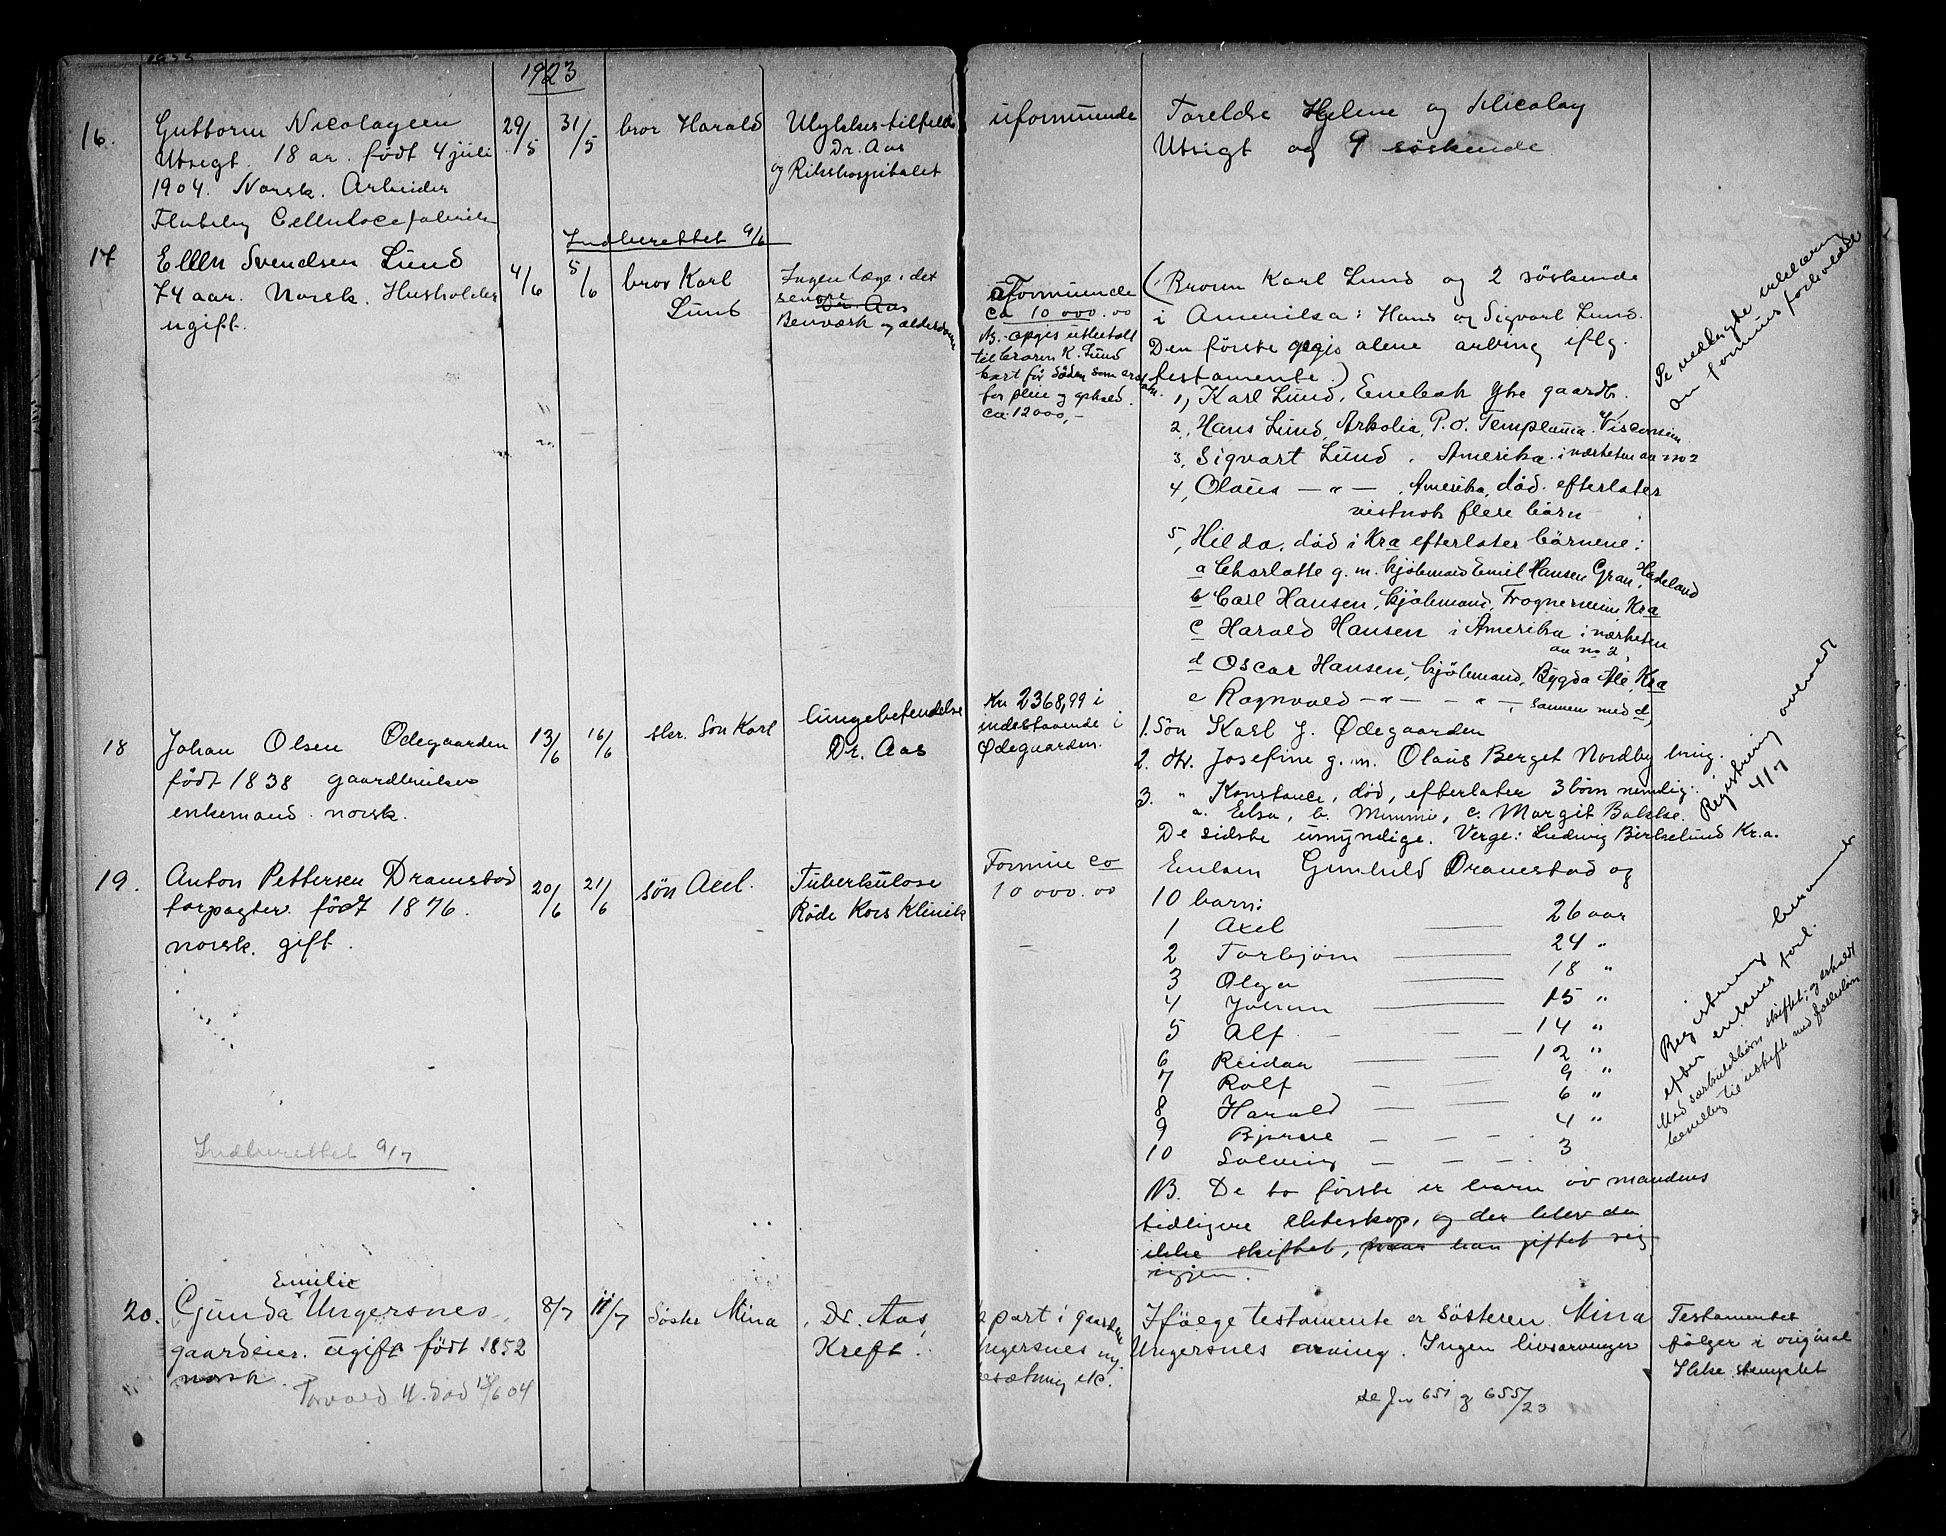 1923
16.
Guttorm Nicolaysen
Utsigt. 18 ar. født 4 juli
1904. Norsk. Arbeider
Cellulosefabrik
29/5
31/5
bror Harald
Ulykkestilfelde
Dr. Aas
og Rikshospitalet
uformuende
Foreldre Helene og Nicolay
Utsigt og 9 søskende
Indberettet 9/6
17
Ellen Svendsen Lund
74 aar. Norsk. Husholder
ugift.
4/6
5/6
bror Karl
Lund
Ingen læge i det
senere
Dr. Aas
Benværk og alderdom
uformuende
ca 10 000.00
NB. opgis utbetalt
til broren K. Lund
kort før døden som
for pleie og ophold.
ca. 12000,-
(Broren Karl Lund og 2 söskende
i Amerika: Hans og Sigvart Lund.
Den første opgis alene arving iflg.
testamente.)
1, Karl Lund, Enebak Ytre gaardbr.
2, Hans Lund, Arkolia, P.O. Visconsin
3, Sigvart Lund, Amerika i nærheten av no 2
4, Olaus — " — , Amerika, död. efterlater
vistnok flere börn
5, Hilda, död i Kra efterlater börnene:
a Charlotte g. m. kjöbmand Emil Hansen Gran, Hadeland
b Carl Hansen, kjöbmand, Frognerveien Kra
c Harald Hansen i Amerika i nærheten
av no 2,
d Oscar Hansen, kjöbmand, Bygdø Alle, Kra
e Ragnvald — " — — " —, sammen med d,
Se vedlagte erklæring
om formuesforholdet
18
Johan Olsen Ødegaarden
født 1838 gaardbruker
enkemand. norsk.
13/6
16/6
Sön Karl
lungebetendelse
Dr. Aas
Kr 2368,99 i
indestaaende i
Ødegaarden.
1. Sön Karl J. Ødegaarden
2. dtr. Josefine g. m. Olaus Berget Nordby brug.
3. " Konstance, död, efterlater 3 börn nemlig:
a. Elsa, b. Mimmi, c. Margit Bakke.
De sidste umyndige. Verge: Ludvig Birkelund Kr.a.
Registrering
4/7
19.
Anton Pettersen Dramstad
forpagter. født 1876.
norsk. gift.
20/6
21/6
søn Axel.
Tuberkulose
Røde Kors Klinik
Formue ca
10 000.00
Enken Gunhild Dramstad og
10 barn:
1 Axel — 26 aar
2 Torbjørn — 24 "
3 Olga — 18 "
4 Johan — 15 "
5 Alf — 14 "
6 Reidar — 12 "
7 Rolf — 9 "
8 Harald — 6 "
9 Bjarne — 4 "
10 Solveig — 3
NB. De to første er barn av mandens
tidligere ekteskap, og der blev da
ikke skiftet, naar han giftet sig
igjen.
Registrering
efter enkens forl.
Med særkuldsbörn skiftet; og erholdt
bevilling til uskifte med fællesbörn
Indberettet 9/7
20.
Emilie
Gunda Ungersnes
gaardeier. ugift født 1852
norsk.
Torvald U. død 12/6 04
8/7
11/7
Søster Mina
Dr. Aas
Kreft.
part i gaarden
Ungersnes
besætning etc.
Ifölge testamente er söSteren Mina
Ungersnes arving. Ingen livsarvinger
se Jn 651 og 655/23
Testamentet
følger i original
Ikke stemplet